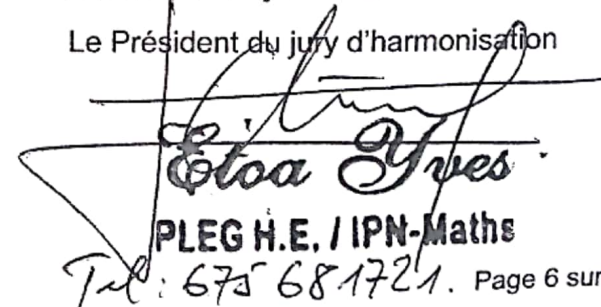 Le Président du jury d'harmonisation
Etoa Yves
PLEG H.E. / IPN-Maths
Tél : 675 681721. Page 6 sur